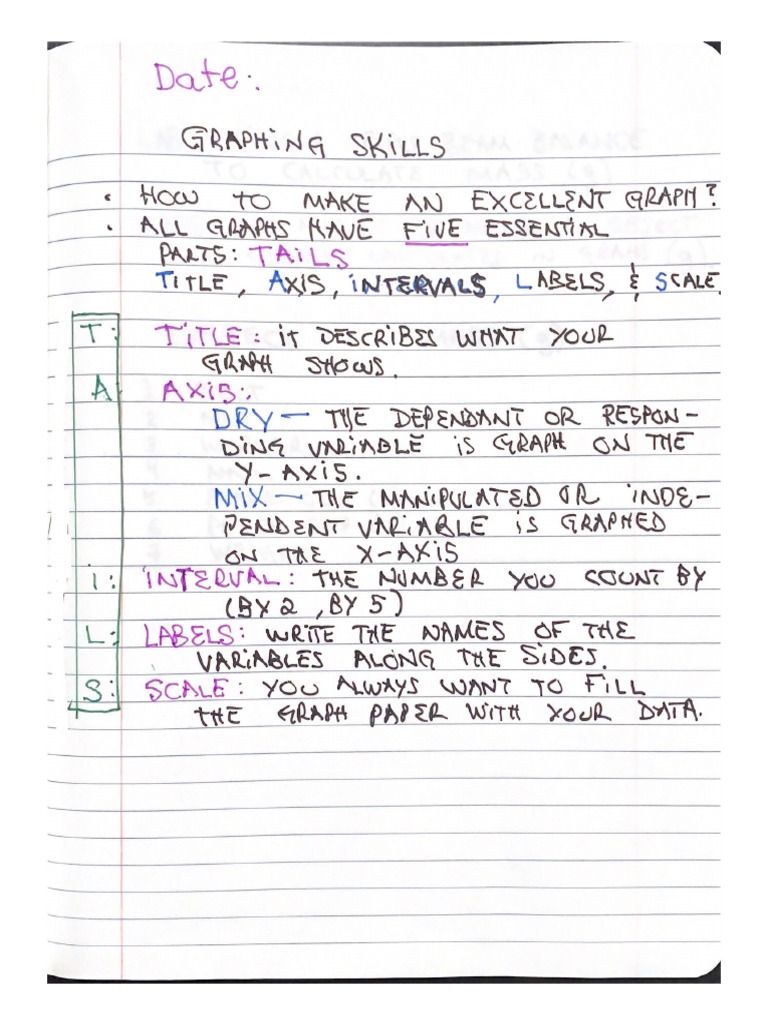 Date:
GRAPHING SKILLS
• HOW TO MAKE AN EXCELLENT GRAPH?
• ALL GRAPHS HAVE FIVE ESSENTIAL
PARTS: TAILS
TITLE, AXIS, INTERVALS, LABELS, & SCALE.
T: TITLE: IT DESCRIBES WHAT YOUR
GRAPH SHOWS.
A: AXIS:
DRY — THE DEPENDANT OR RESPON-
DING VARIABLE IS GRAPH ON THE
Y-AXIS.
MIX — THE MANIPULATED OR INDE-
PENDENT VARIABLE IS GRAPHED
ON THE X-AXIS
i: INTERVAL: THE NUMBER YOU COUNT BY
(BY 2, BY 5)
L: LABELS: WRITE THE NAMES OF THE
VARIABLES ALONG THE SIDES.
S: SCALE: YOU ALWAYS WANT TO FILL
THE GRAPH PAPER WITH YOUR DATA.